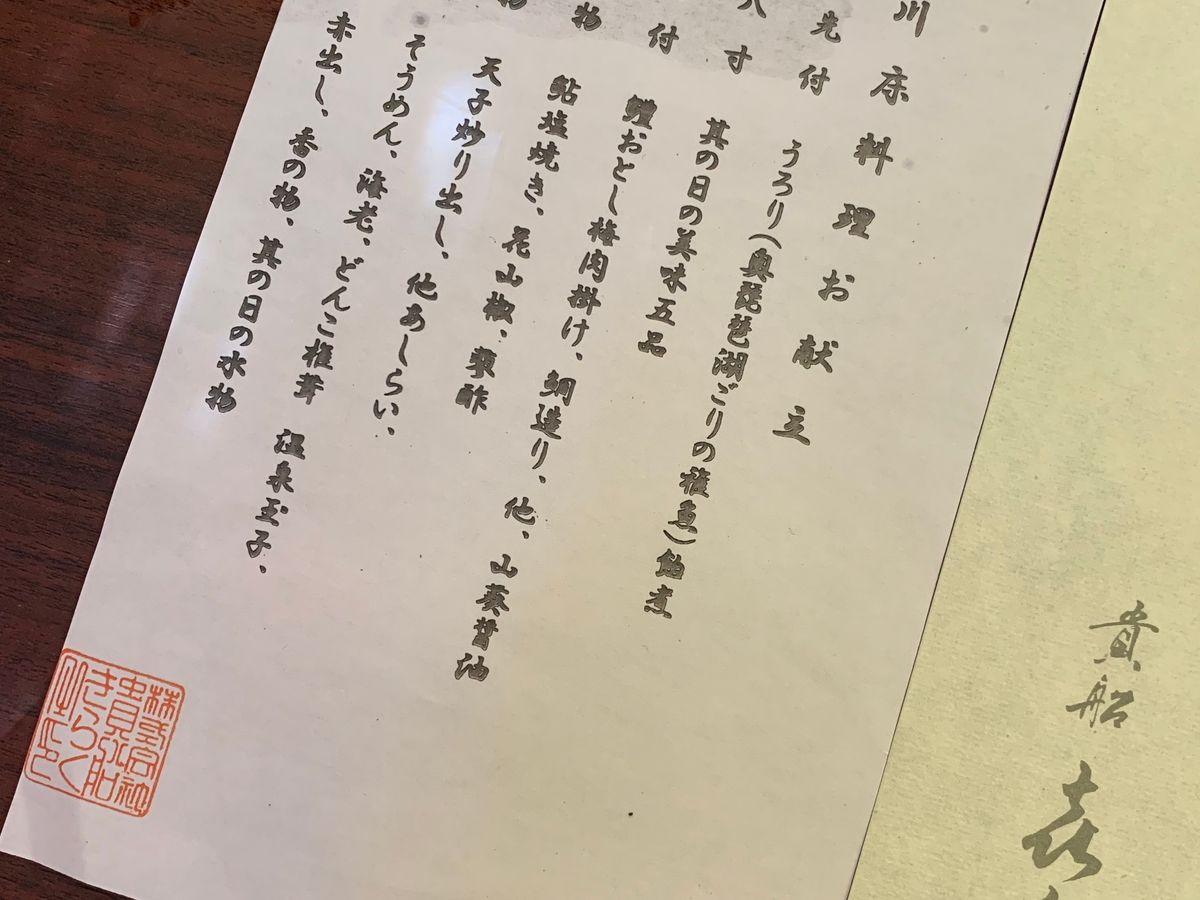 川床料理お献立
先付
うろり(奥琵琶湖ごりの稚魚)飴煮
八寸
其の日の美味五品
付
鱧おとし梅肉掛け、鯛造り、他、山葵醤油
物
鮎塩焼き、花山椒、蓼酢
物
天子炒り出し、他あしらい、
そうめん、海老、どんこ椎茸 温泉玉子、
赤出し、香の物、其の日の水物
株式会社
貴船
きらく
之印
貴船
喜